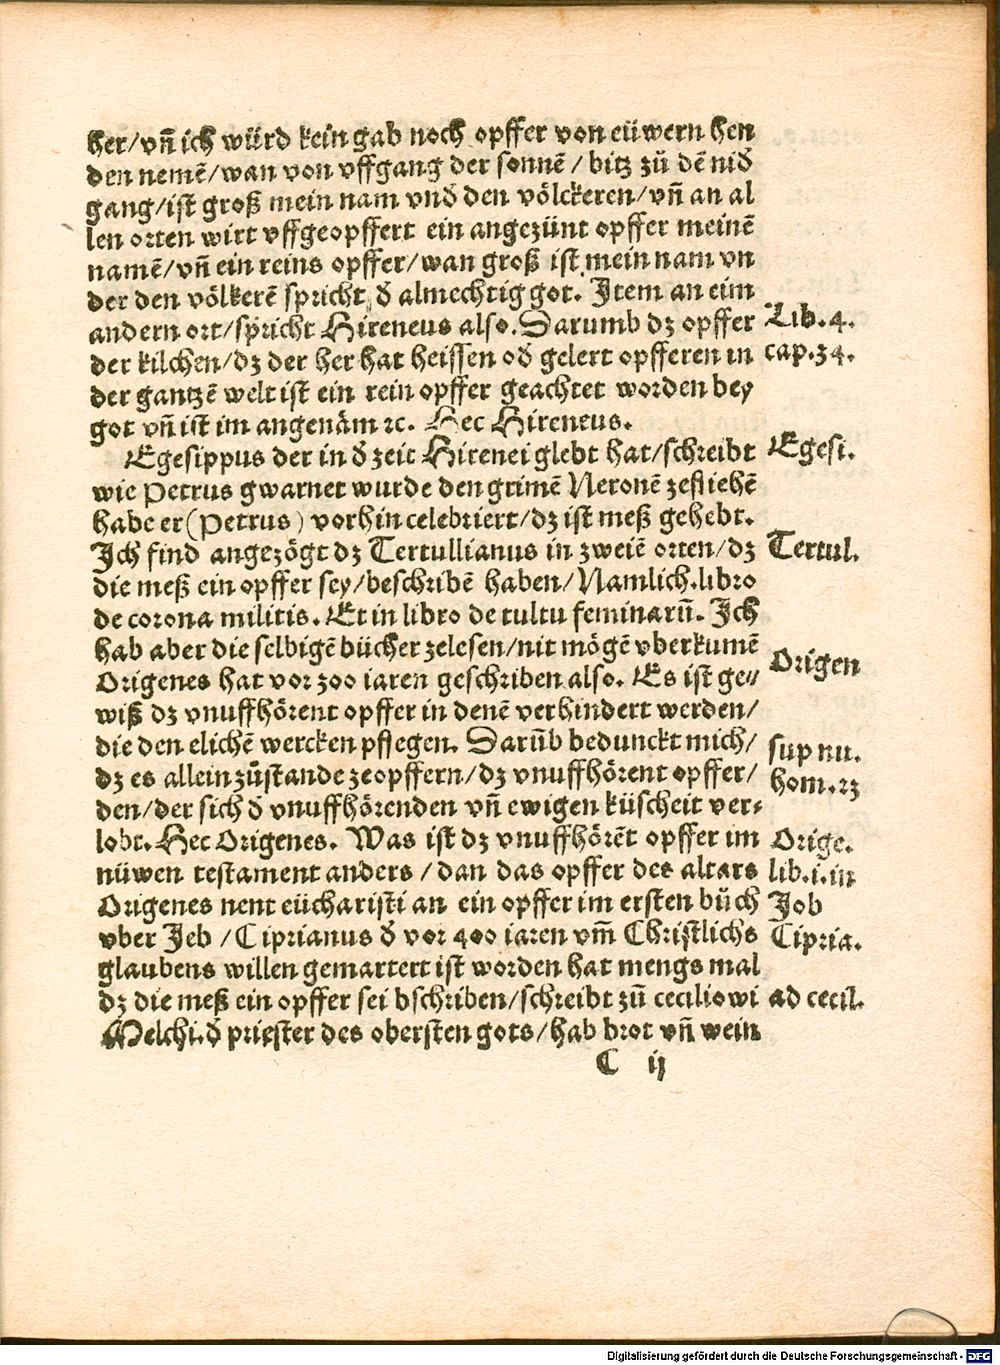 her/vñ ich würd kein gab noch opffer von eüwern hen
den nemẽ/wan von vffgang der sonnẽ/bitz zů dẽ nid̕
gang/ist groß mein nam vnd̕ den völckeren/vñ an al
len orten wirt vffgeopffert ein angezünt opffer meinẽ
namẽ/vñ ein reins opffer/wan groß ist mein nam vn
der den völkerẽ spricht d̕ almechtig got. Item an eim
andern ort/spricht Hireneus also. Darumb dz opffer
Lib.4.
der kilchen/dz der her hat heissen od̕ gelert opfferen in
cap.34.
der gantzẽ welt ist ein rein opffer geachtet worden bey
got vñ ist im angenäm ꝛc. Hec Hireneus.
Egesippus der in d̕ zeit Hirenei glebt hat/schreibt
Egesi.
wie Petrus gwarnet wurde den grimẽ Neronẽ zefliehẽ
habe er(Petrus) vorhin celebriert/dz ist meß gehebt.
Ich find angezögt dz Tertullianus in zweiẽ orten/dz
Tertul.
die meß ein opffer sey/beschribẽ haben/Namlich.libro
de corona militis. Et in libro de cultu feminarũ. Ich
hab aber die selbigẽ bücher zelesen/nit mögẽ vberkumẽ
Origenes hat vor 300 iaren geschriben also. Es ist ge⸗
Origen
wiß dz vnuffhörent opffer in denẽ verhindert werden/
die den elichẽ wercken pflegen. Darũb bedunckt mich/
sup nu.
dz es allein zůstande zeopffern/dz vnuffhörent opffer/
hom.23
den/der sich d̕ vnuffhörenden vñ ewigen küscheit ver⸗
lobt. Hec Origenes. Was ist dz vnuffhörẽt opffer im
Orige.
nüwen testament anders/dan das opffer des altars
lib.i.in
Origenes nent eücharisti an ein opffer im ersten bůch
Job
vber Job/Ciprianus d̕ vor 400 iaren vm̃ Christlichs
Cipria.
glaubens willen gemartert ist worden hat mengs mal
dz die meß ein opffer sei bschriben/schreibt zů cecilio wi
ad cecil.
Melchi.d̕ priester des obersten gots/hab brot vñ wein
C ij
Digitalisierung gefördert durch die Deutsche Forschungsgemeinschaft - DFG